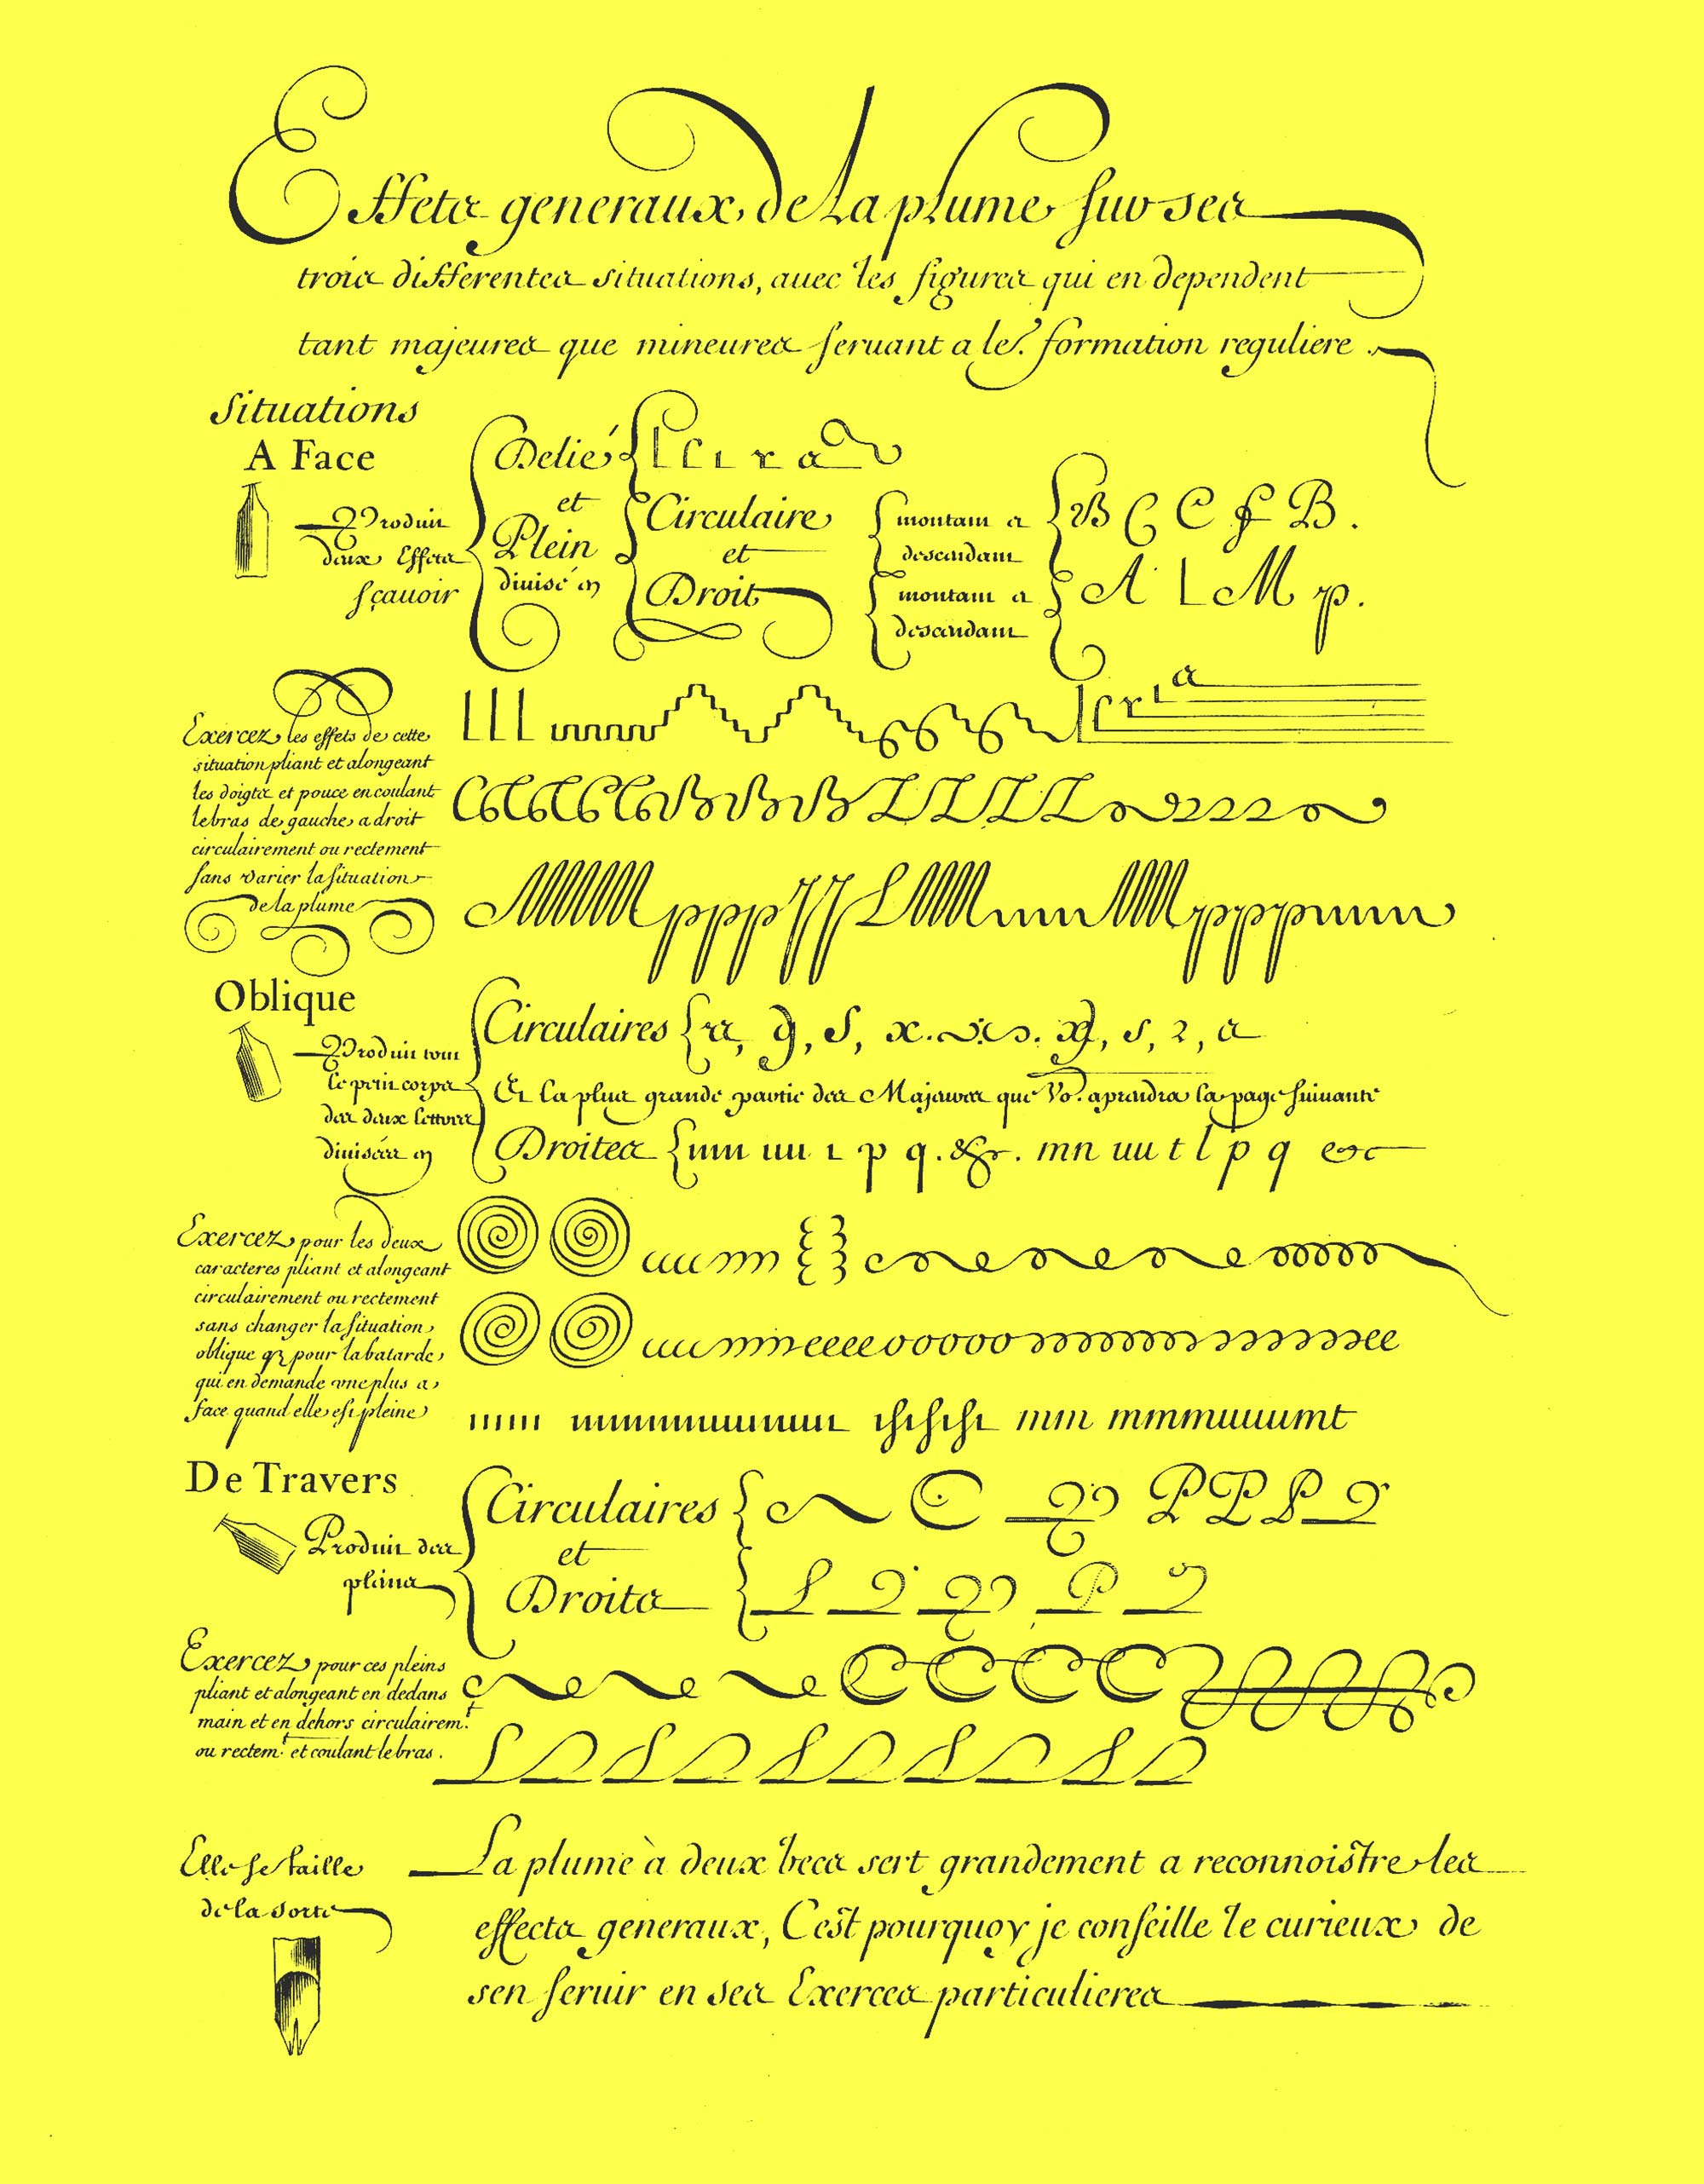 Effets generaux de la plume sur ses
trois differentes situations, auec les figures qui en dependent
tant majeures que mineures seruant a le.r formation reguliere.
Situations
A Face
Produit
deux Effets
sçauoir
Delié
et
Plein
diuisé en
l c ı r a
Circulaire
et
Droit
montant et
descendant
montant et
descendant
B C C f B.
A L M p.
l c r ı a
Exercez les effets de cette
situation pliant et alongeant
les doigts et pouce en coulant
le bras de gauche a droit
circulairement ou rectement
sans varier la situation
de la plume
Oblique
Produit tout
le petit corps
des deux lettres
divisées en
Circulaires
a, g, s, x. s, 2, a
Et la plus grande partie des Majeures que Vo.s aprendra la page suiuante
Droites
mn uu ı p q. &. mn uu t l p q etc
Exercez pour les deux
caracteres pliant et alongeant
circulairement ou rectement
sans changer la situation
oblique pour la batarde
qui en demande vne plus a
face quand elle est pleine
De Travers
Produit des
pleins
Circulaires
et
Droits
Exercez pour ces pleins
pliant et alongeant en dedans
main et en dehors circulairem.t
ou rectem.t et coulant le bras.
Elle se taille
de la sorte
La plume à deux becs sert grandement a reconnoistre les
effects generaux, C'est pourquoy je conseille le curieux de
sen seruir en ses Exerces particulieres